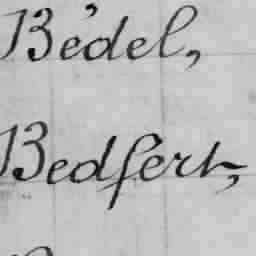 Bédel,
Bedfert,